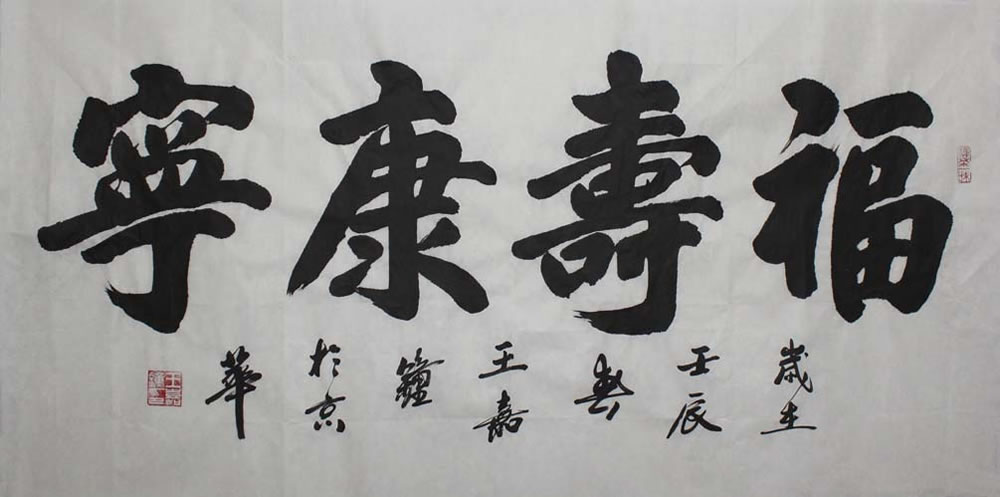 福壽康寧
歲在
壬辰
春
王嘉
於京
華